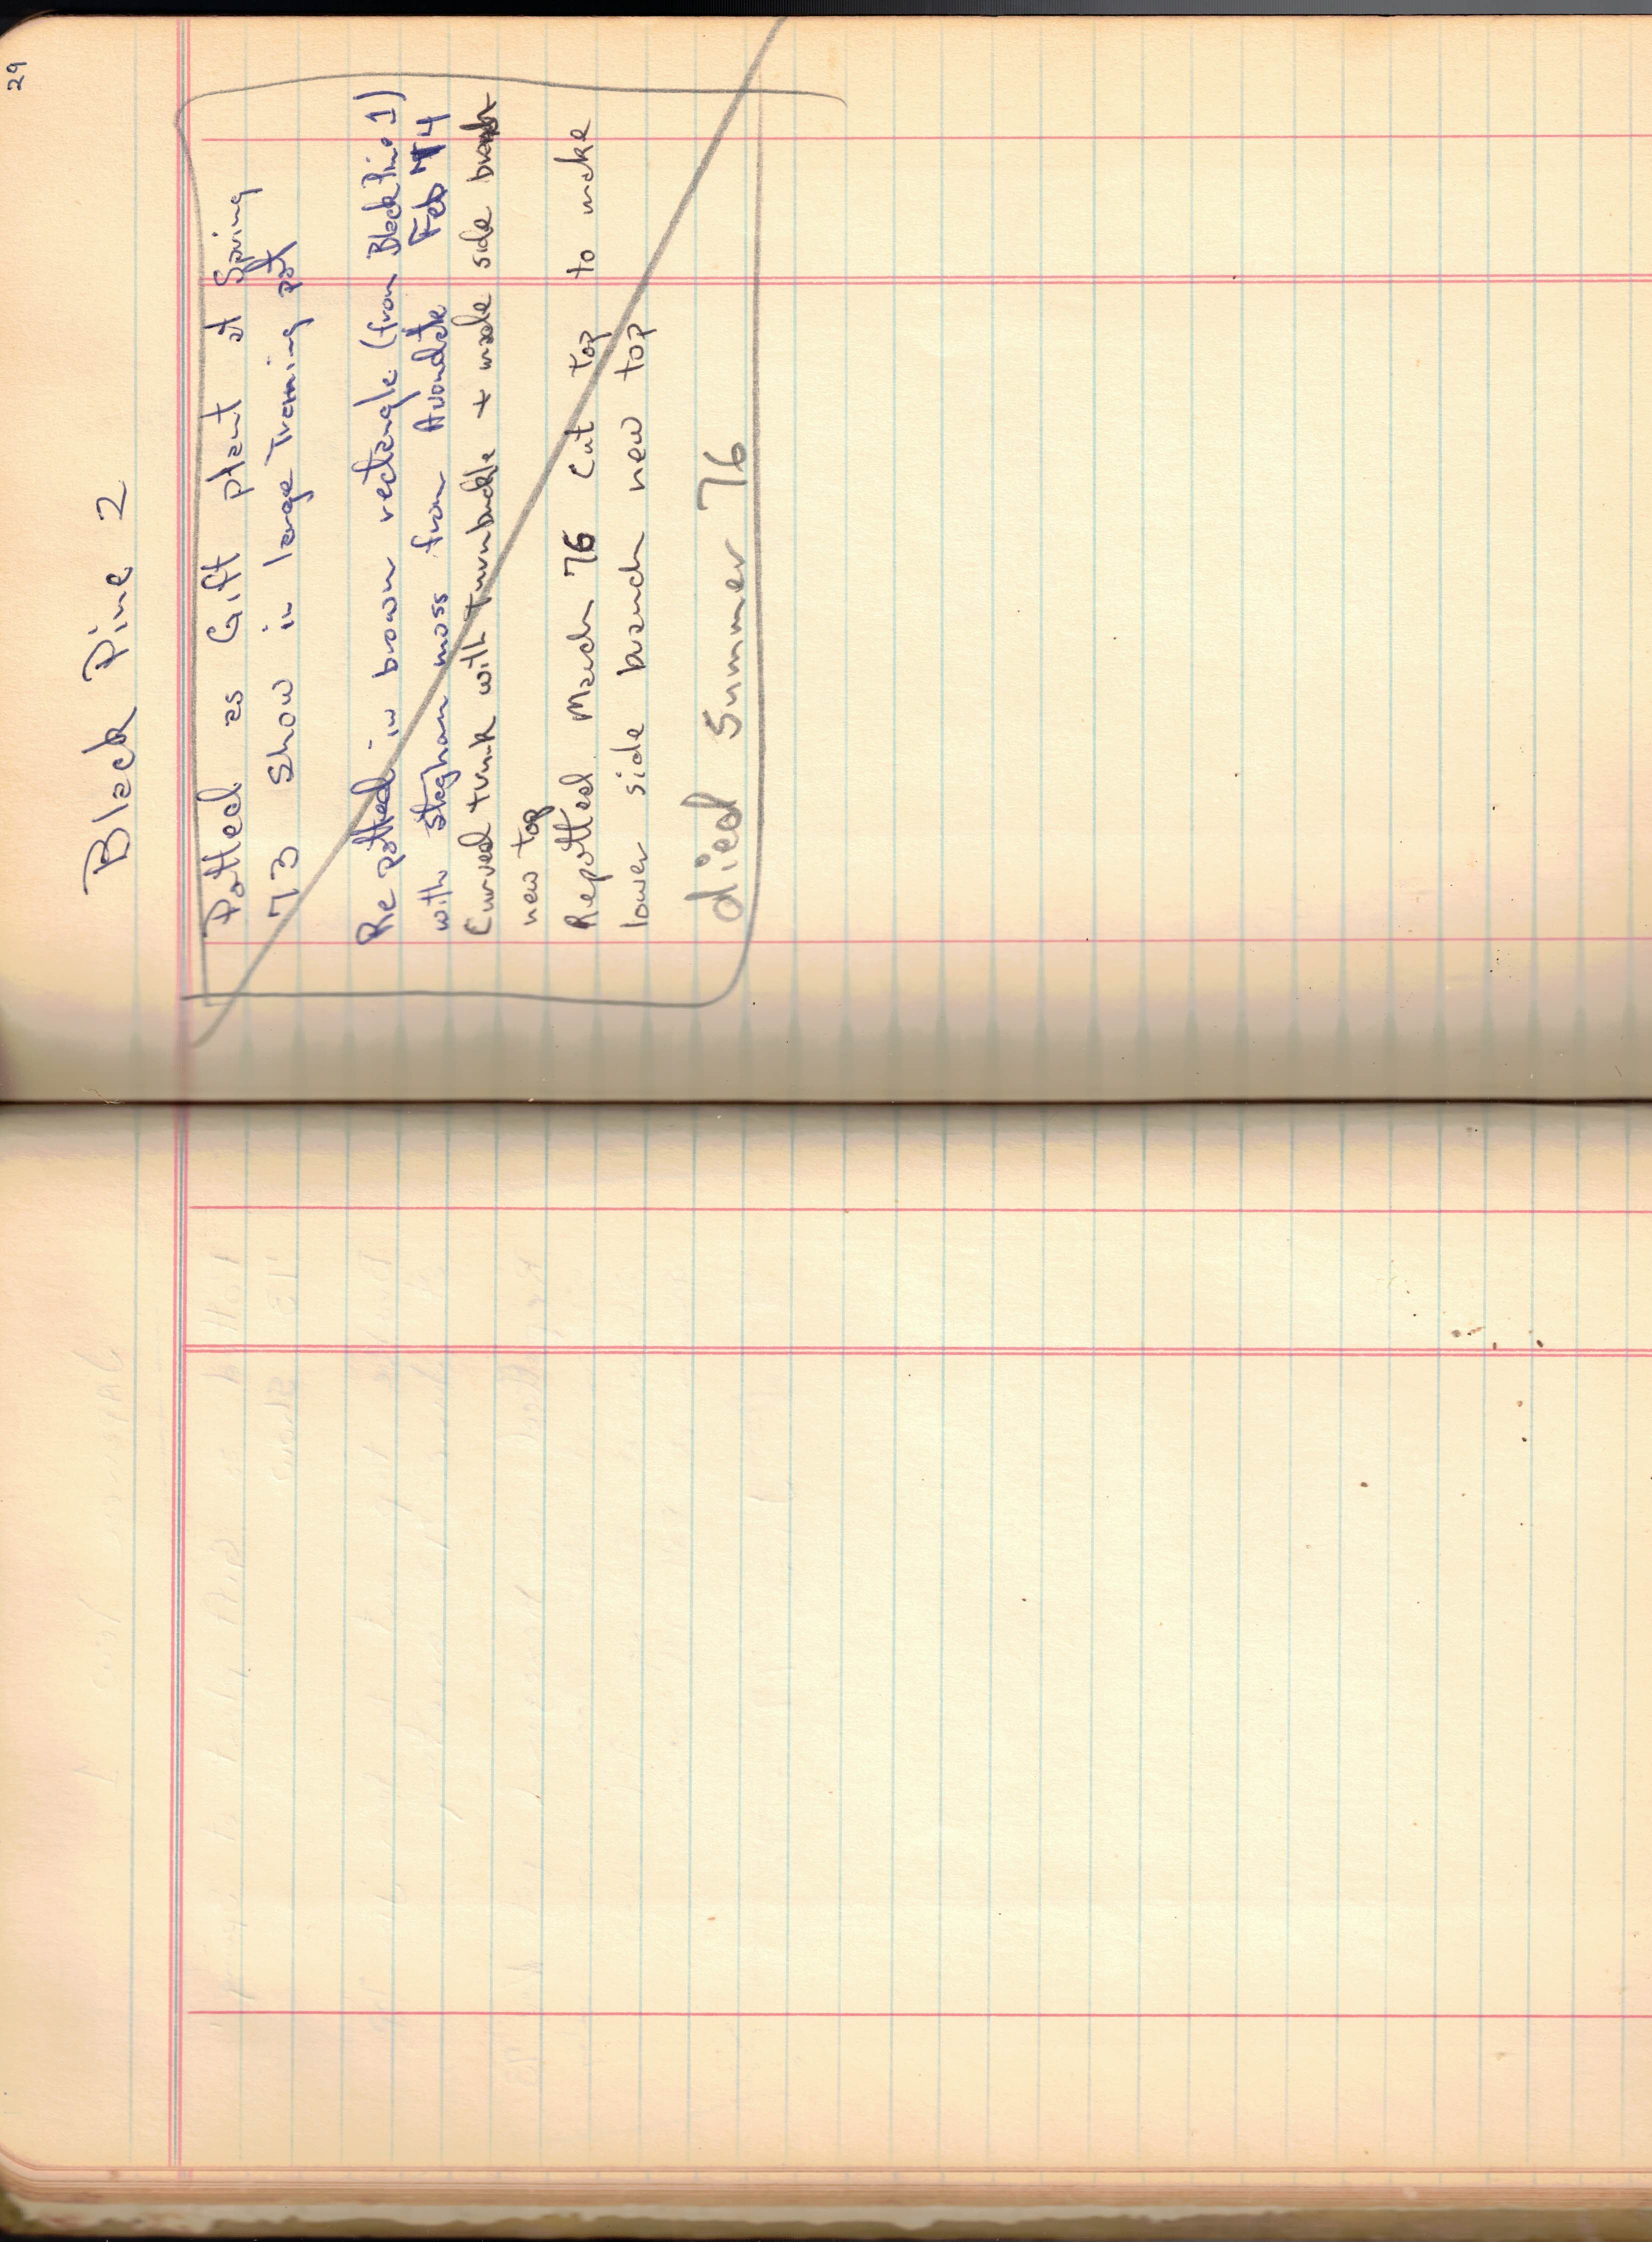 29
Black Pine 2
Potted as Gift plant at Spring
73 Show in large Training pot
Re potted in brown rectangle (from Black Pine 1)
with staghorn moss from Avondale Feb 74
Curved trunk with turnbuckle + made side branch
new top
Repotted March 76 Cut top to make
lower side branch new top
died Summer 76